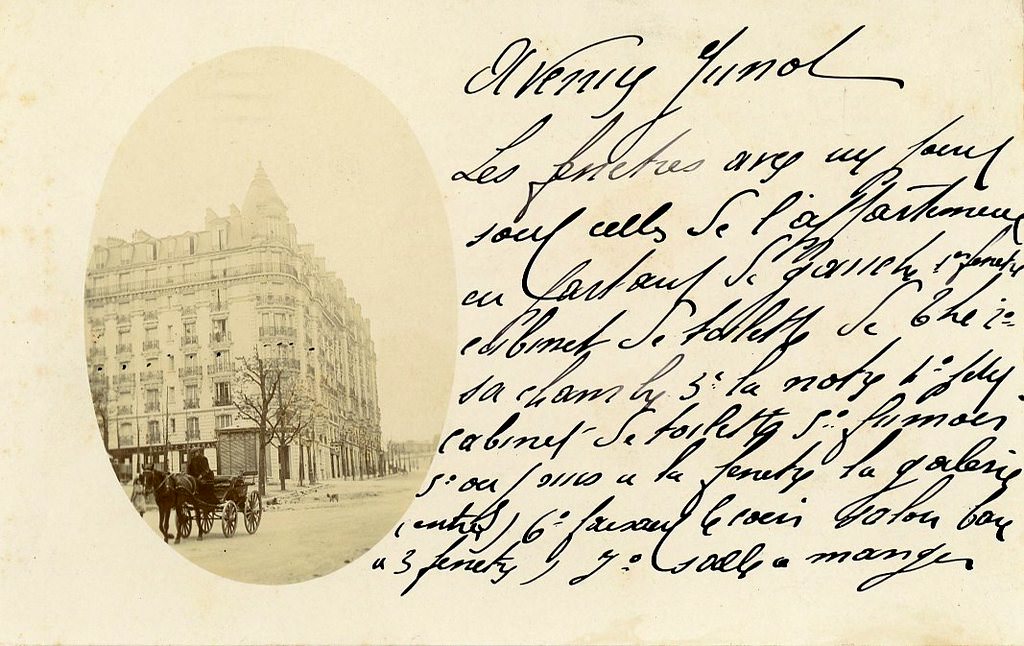 Avenue Junot
Les fenetres avec un
sont celles de l'appartement
en partant de gauche 1re fenetre
cabinet de toilette de 2o
sa chambre 3o la notre 4o
cabinet de toilette 5o fumoir
a la fenetre la galerie
(entrée) 6o faisant le coin salon
a 3 fenetres 7o salle a manger